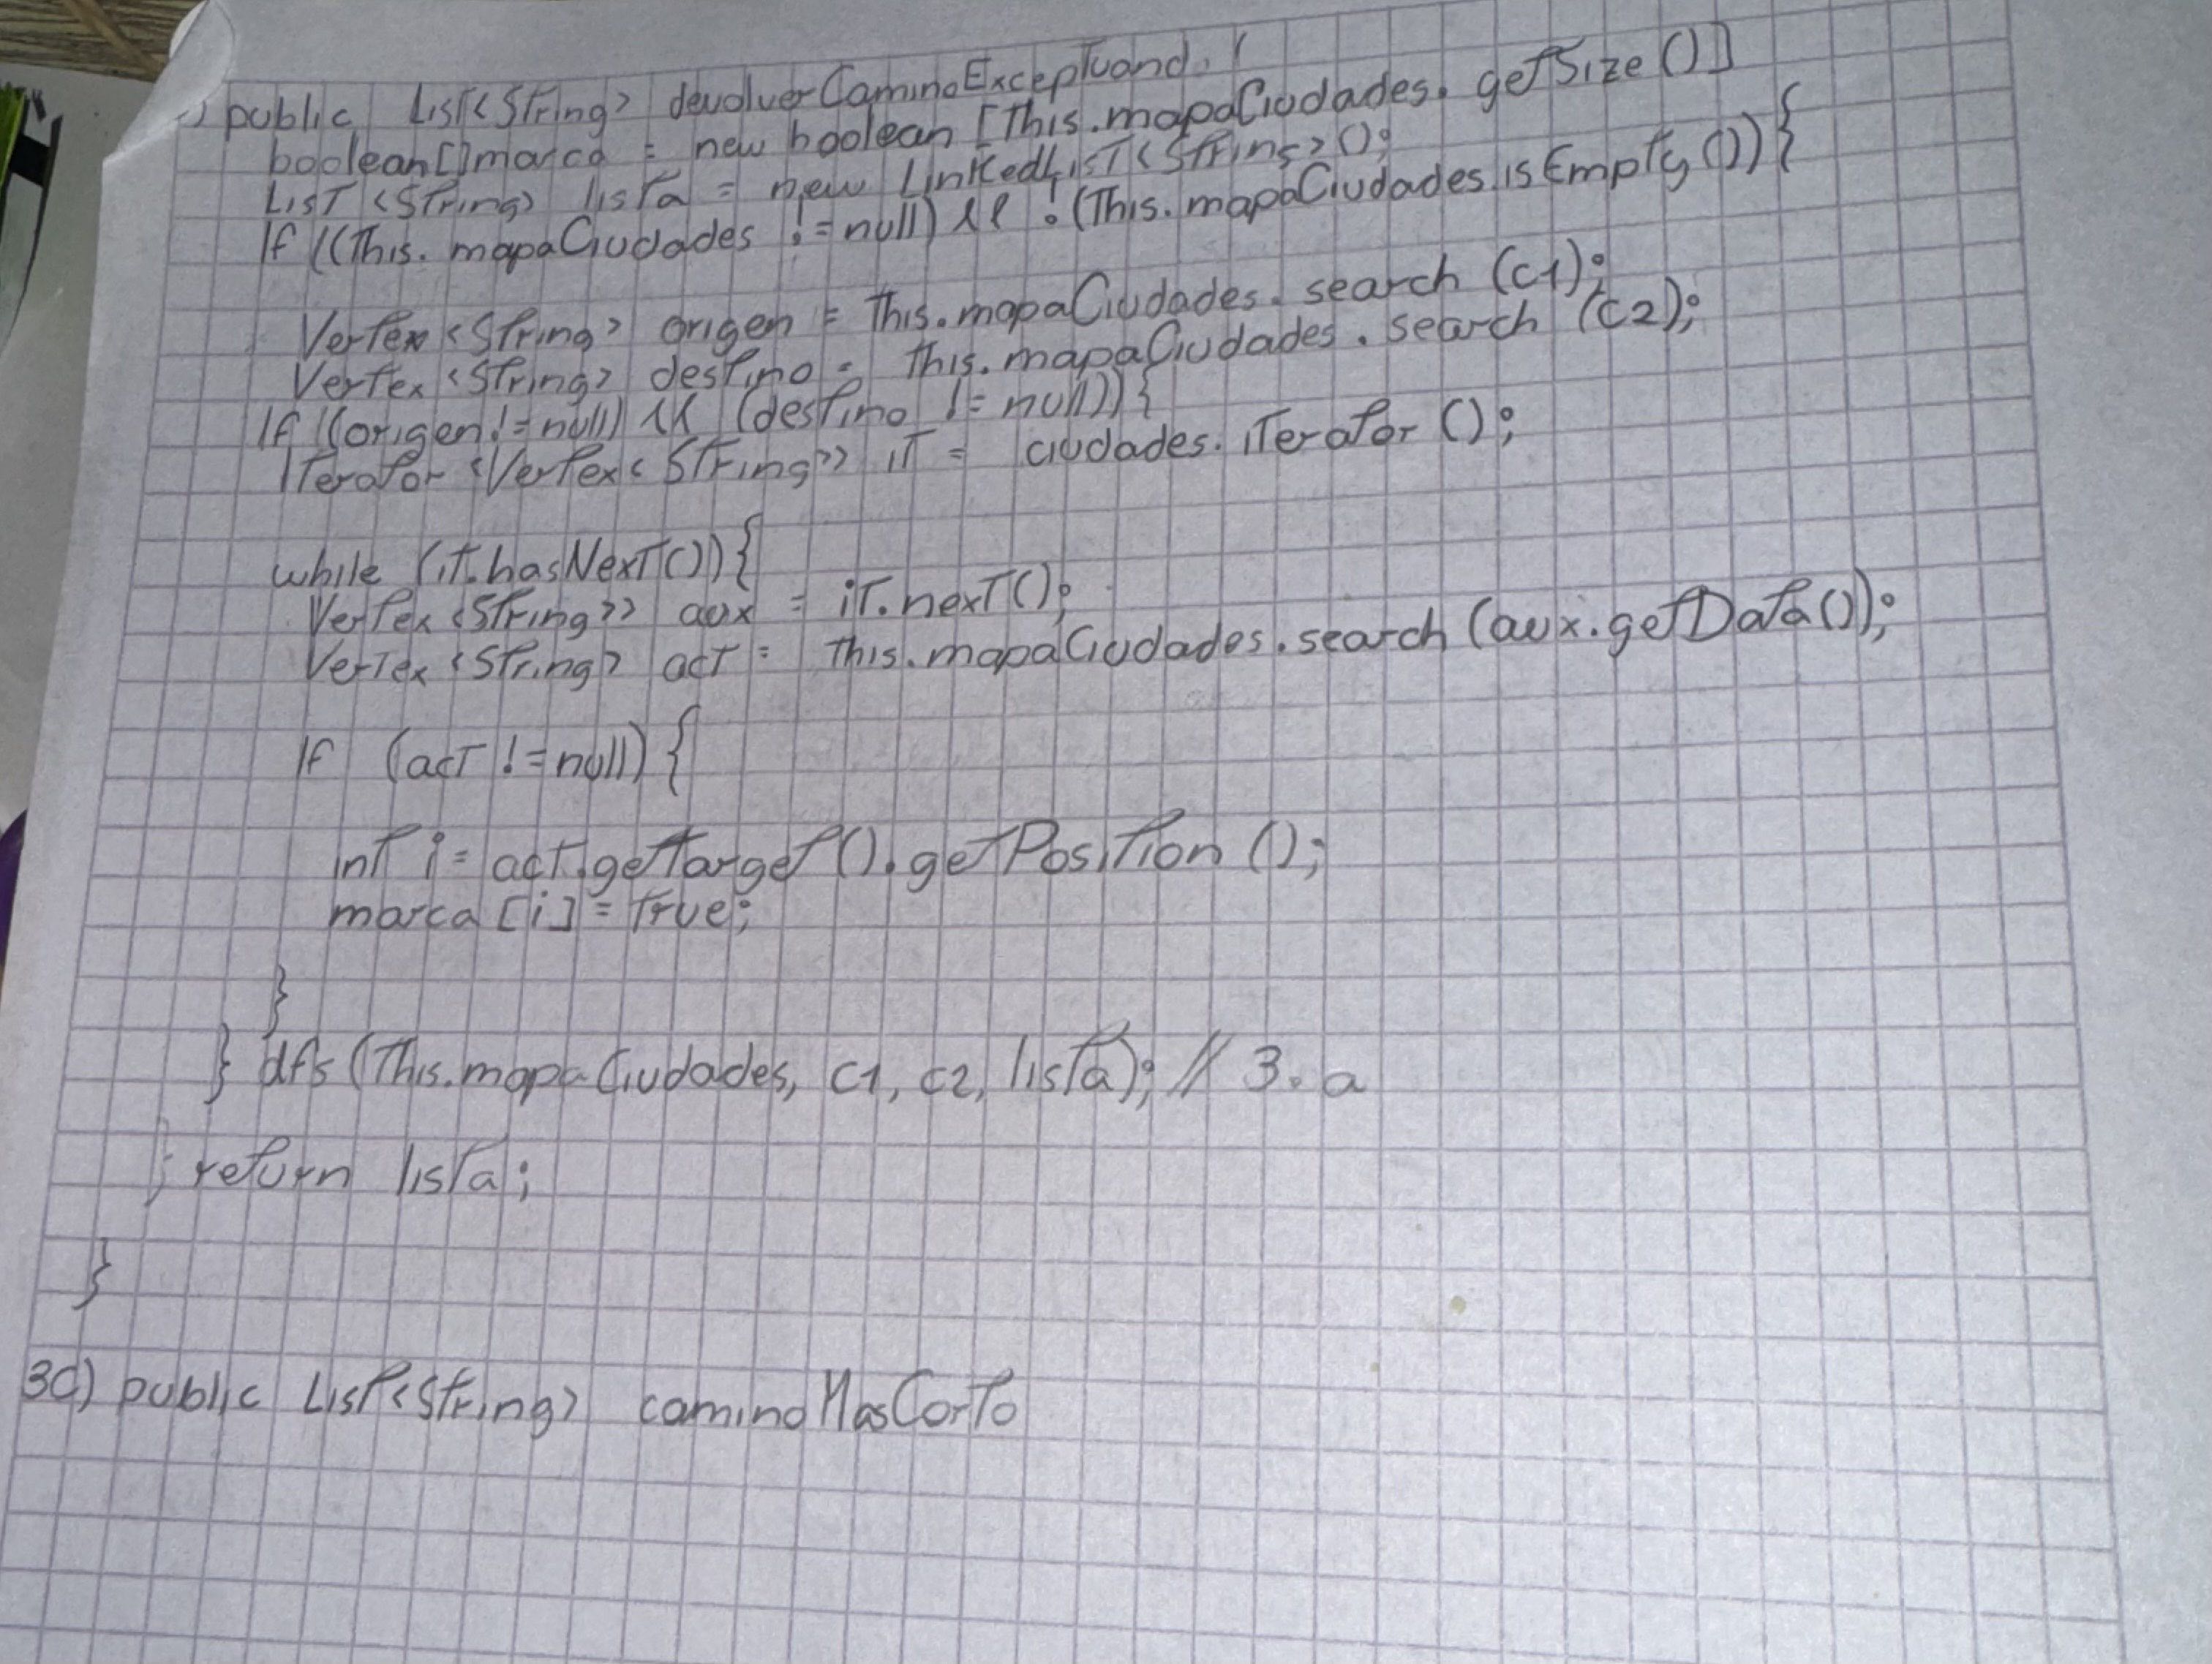 ) public List<String> devolverCaminoExceptuand. (
boolean[]marca = new boolean [This.mapaCiudades.getSize()]
List <String> lista = new LinkedList<String>();
If ((This.mapaCiudades != null) && !(This.mapaCiudades.isEmpty()){
Vertex <String> origen = This.mapaCiudades.search (c1);
Vertex <String> destino = This.mapaCiudades.search (c2);
If ((origen != null) && (destino != null)){
Iterator <Vertex<String>> it = ciudades.iterator ();
while (it.hasNext()){
Vertex <String>> aux = it.next();
Vertex <String> act = This.mapaCiudades.search (aux.getData());
If (act != null) {
int i = act.getTarget().getPosition ();
marca [i] = True;
}
} dfs (This.mapaCiudades, c1, c2, lista); // 3.a
} return lista;
}
3C) public List<String> caminoMasCorto